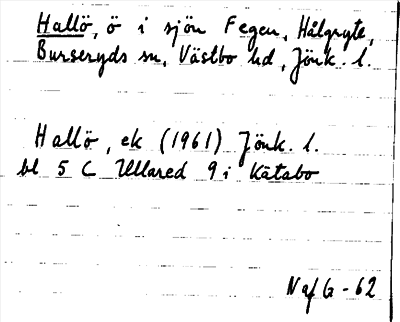 Hallö, ö i sjön Fegen, Hålgryte,
Burseryds sn, Västbo hd, Jönk. l.
Hallö, ek (1961) Jönk. l.
bl 5 C Ullared 9 i Kätabo
N af G - 62